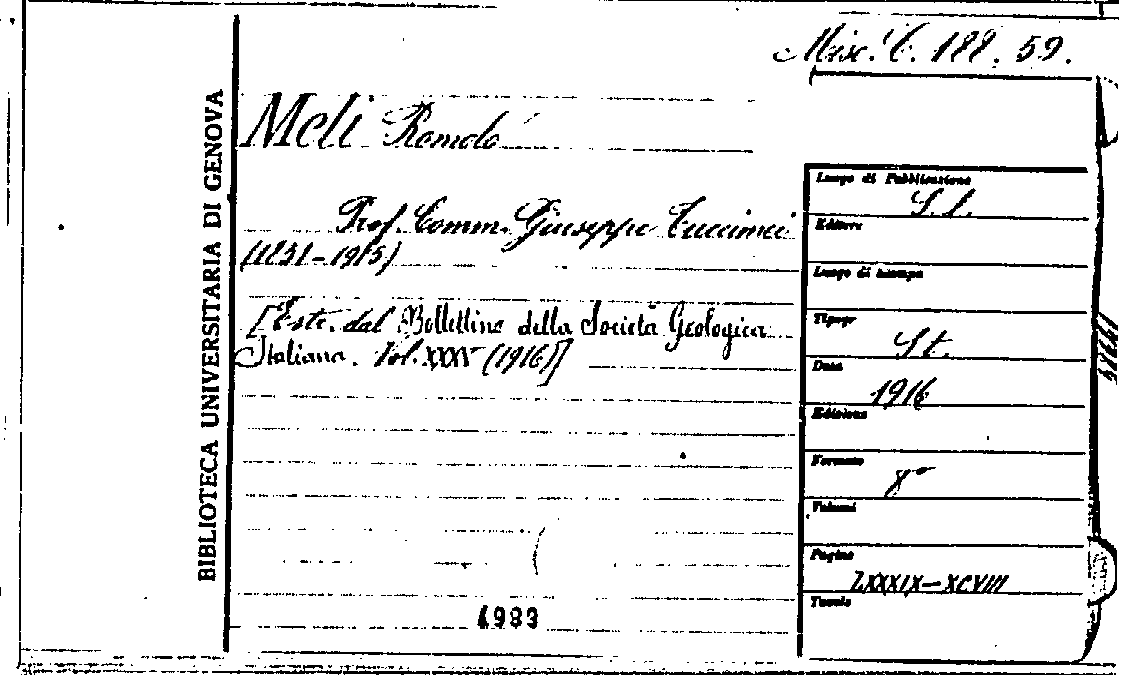 Misc. C. 188. 59.
BIBLIOTECA UNIVERSITARIA DI GENOVA
Meli Romolo
Prof. Comm. Giuseppe Tuccimei
(1851-1915)
[Estr. dal Bollettino della Società Geologica
Italiana. Vol. XXXV (1916)]
4983
Luogo di Pubblicazione
S. l.
Editore
Luogo di stampa
Tipogr
St.
Data
1916
Edizione
Formato
8º
Volumi
Pagine
LXXXIX-XCVIII
Tavole